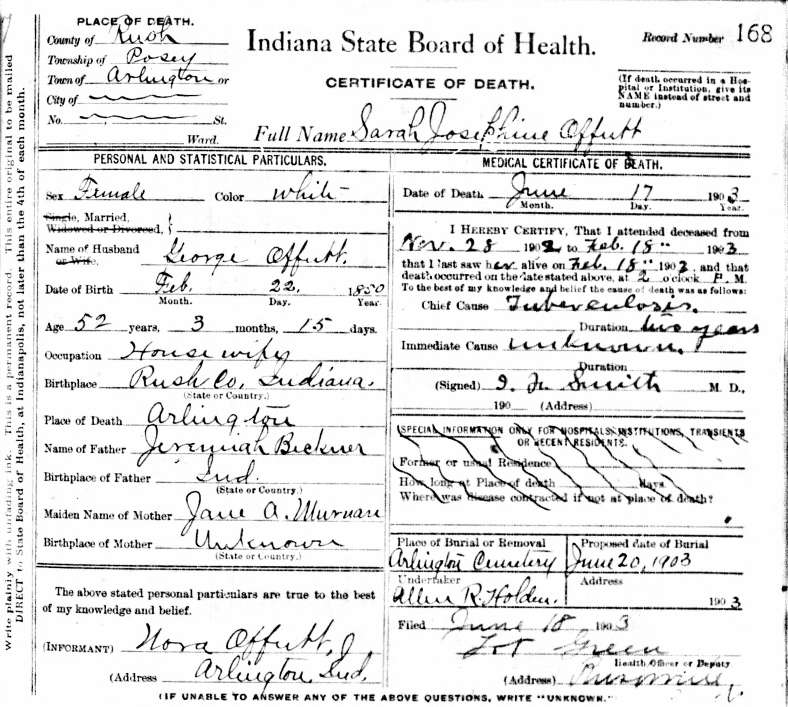 PLACE OF DEATH.
County of Rush
Township of Posey
Town of Arlington or
City of
No. St.
Ward.
Indiana State Board of Health.
CERTIFICATE OF DEATH.
Record Number 168
(If death occurred in a Hos-
pital or Institution, give its
NAME instead of street and
number.)
Full Name Sarah Josephine Offutt
Write plainly with unfading ink. This is a permanent record. This entire original to be mailed
DIRECT to State Board of Health, at Indianapolis, not later than the 4th of each month.
PERSONAL AND STATISTICAL PARTICULARS.
Sex Female Color White
Single, Married,
Widowed or Divorced,
Name of Husband George Offutt.
or Wife,
Date of Birth Feb. 22, 1850
Month. Day. Year.
Age 52 years, 3 months, 15 days.
Occupation House wify
Birthplace Rush Co, Indiana.
(State or Country.)
Place of Death Arlington
Name of Father Jeremiah Beckner
Birthplace of Father Ind.
(State or Country.)
Maiden Name of Mother Jane A. Murnan
Birthplace of Mother Unknown
(State or Country.)
The above stated personal particulars are true to the best
of my knowledge and belief.
(INFORMANT) Nora Offutt
(Address Arlington, Ind.
MEDICAL CERTIFICATE OF DEATH.
Date of Death June 17 1903
Month. Day. Year.
I HEREBY CERTIFY, That I attended deceased from
Nov. 28 1902 to Feb. 18" 1903
that I last saw her alive on Feb. 18" 1903, and that
death occurred on the date stated above, at 2 o'clock P. M.
To the best of my knowledge and belief the cause of death was as follows:
Chief Cause Tuberculosis.
Duration two years
Immediate Cause unknown.
Duration
(Signed) Smith M. D.,
190 (Address)
SPECIAL INFORMATION ONLY FOR HOSPITALS, INSTITUTIONS, TRANSIENTS
OR RECENT RESIDENTS.
Former or usual Residence
How long at Place of death days
Where was disease contracted if not at place of death?
Place of Burial or Removal Proposed date of Burial
Arlington Cemetery June 20, 1903
Undertaker Address
Allen R. Holden. 1903
Filed June 18 1903
Lot Green
Health Officer or Deputy
(Address)
(IF UNABLE TO ANSWER ANY OF THE ABOVE QUESTIONS, WRITE "UNKNOWN."